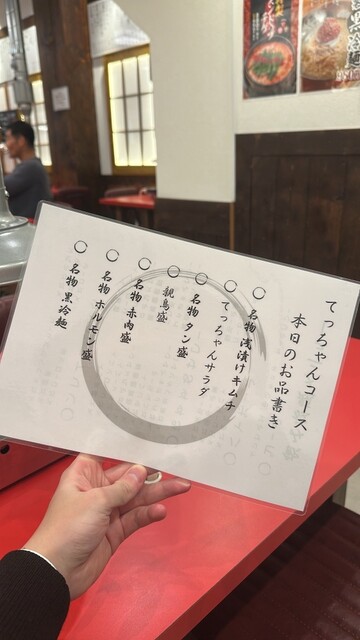 てっちゃんコース
本日のお品書き
○ 名物 浅漬けキムチ
○ てっちゃんサラダ
○ 名物 タン盛
○ 親鳥盛
○ 名物 赤肉盛
○ 名物 ホルモン盛
○ 名物 黒冷麺